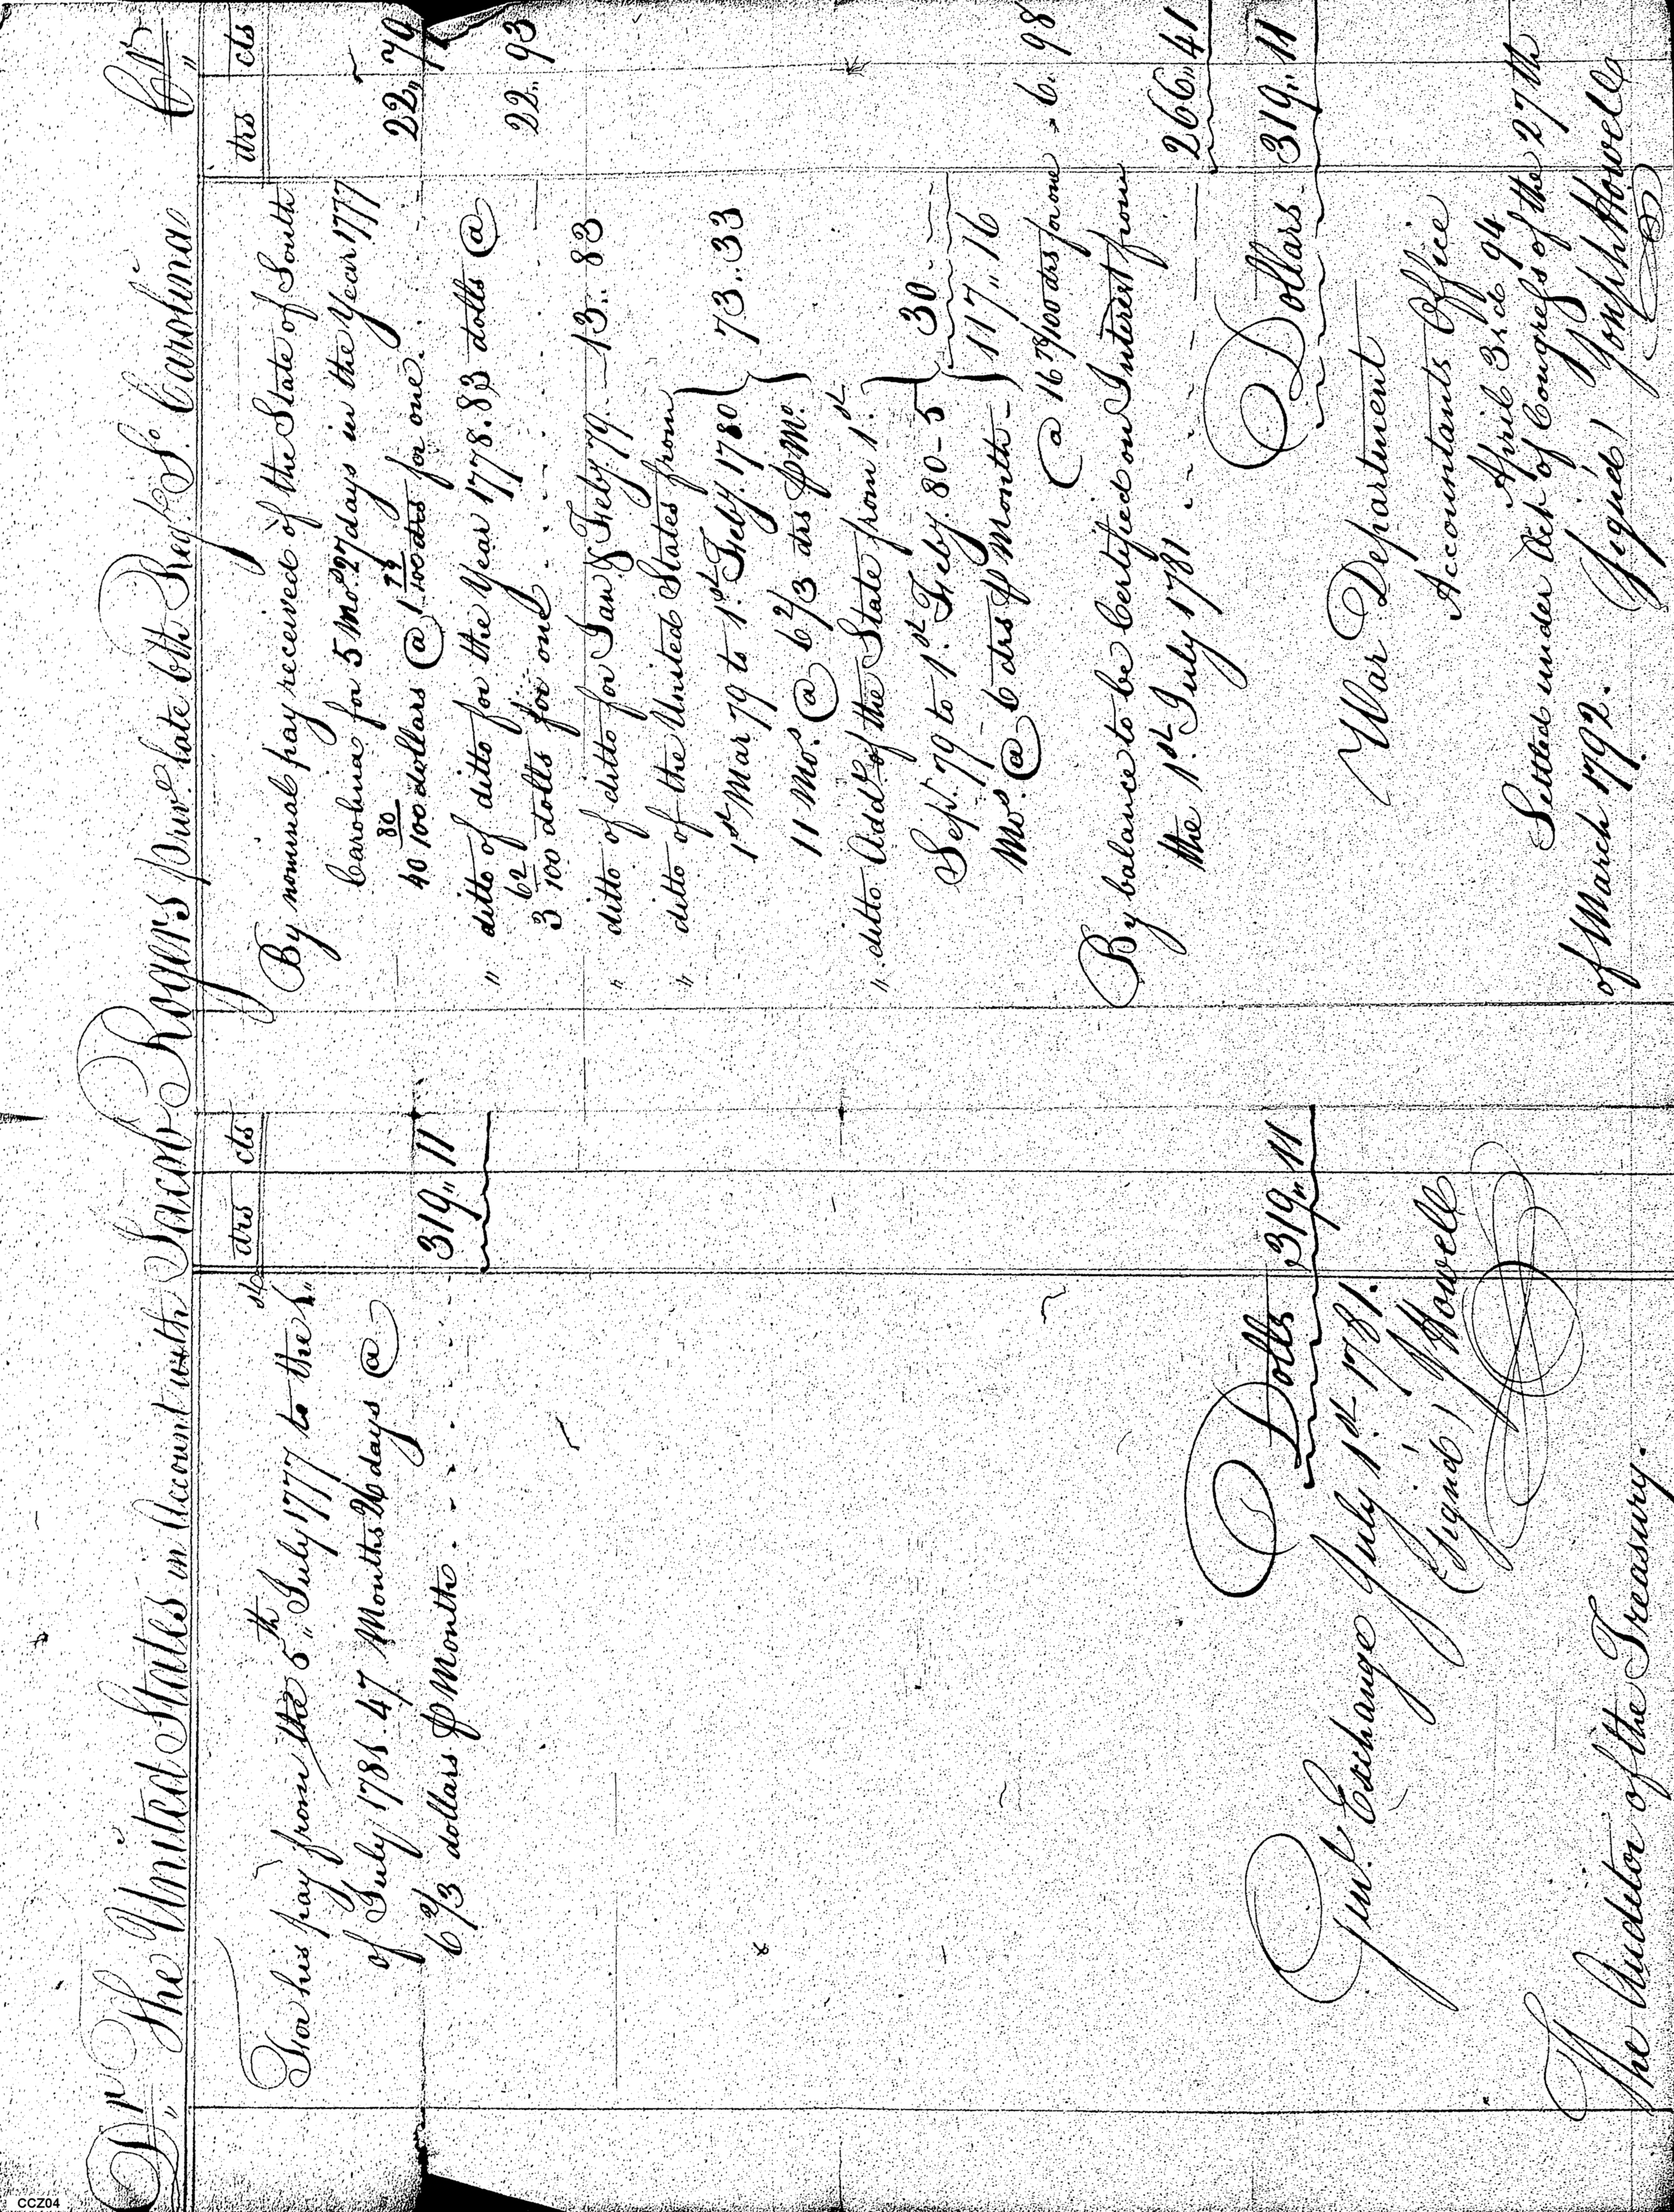 Dr. The United States in Account with Jacob Rogers private late 6th Regt. So. Carolina Cr.
drs cts
For his pay from the 5th July 1777 to the 1st
of July 1781. 47 Months 26 days @
6 2/3 dollars P Month . . . . . . 319,, 11
Dolls 319,, 11
Genl. Exchange July 1st 1781.
(signd) J Howell
The Auditor of the Treasury.
drs cts
By nominal pay received of the State of South
Carolina for 5 Mos. 27 days in the Year 1777
40 80/100 dollars @ 1 79/100 drs for one. 22,, 79
" ditto of ditto for the Year 1778. 83 dolls @
3 62/100 dolls for one . . . . . 22,, 93
" ditto of ditto for Jan & Feby. 79. — 13.. 83
" ditto of the United States from
1st Mar 79 to 1st Feby. 1780
11 Mos. @ 6 2/3 drs P Mo. } 73.. 33
" ditto Addl. of the State from 1st.
Sepr. 79 to 1st Feby. 80 - 5
Mos. @ 6 drs P Month - } 30
117,, 16
@ 16 78/100 drs for one 6. 98
By balance to be Certified on Interest from
the 1st July 1781 - - - - 266,, 41
Dollars 319.. 11
War Department
Accountants Office
April 3rd 94
Settled under Act of Congress of the 27th
of March 1792. Signed) Joseph Howell
CCZ04